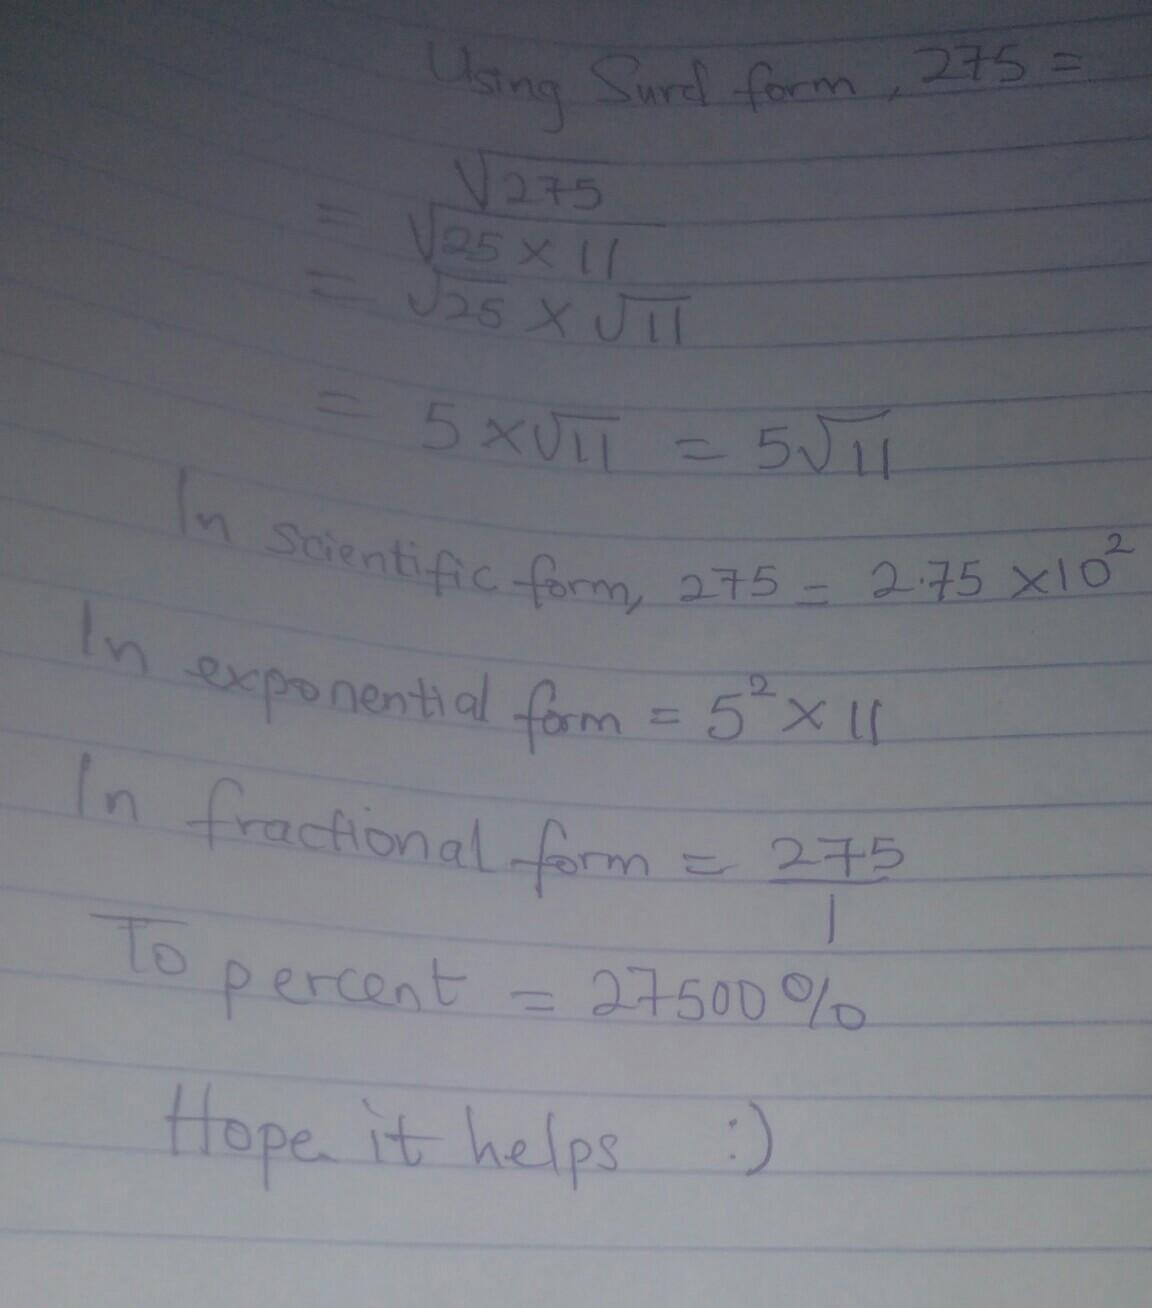 Using Surd form, 275 =
√275
= √25 × 11
= √25 × √11
= 5 × √11 = 5√11
In scientific form, 275 = 2.75 × 10²
In exponential form = 5² × 11
In fractional form = 275/1
To percent = 27500%
Hope it helps :)